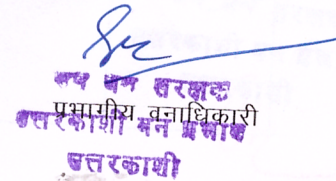 उप वन संरक्षक
प्रभागीय वनाधिकारी
उत्तरकाशी वन प्रभाग
उत्तरकाशी